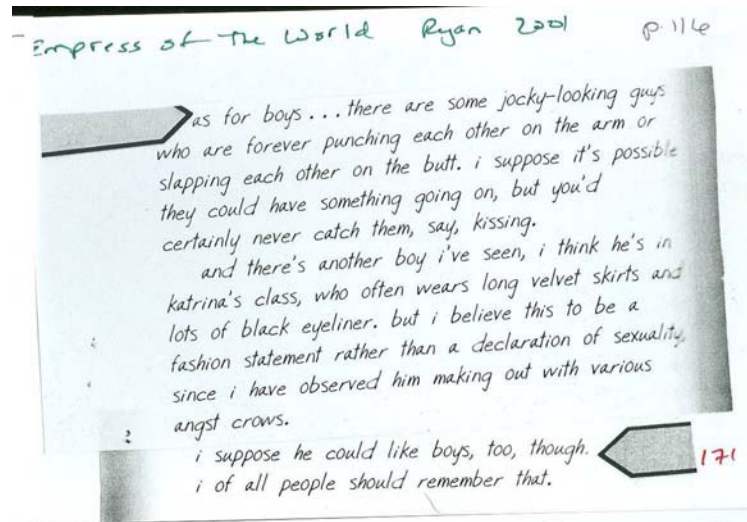 Empress of the World Ryan 2001 p.116
as for boys... there are some jocky-looking guys
who are forever punching each other on the arm or
slapping each other on the butt. i suppose it's possible
they could have something going on, but you'd
certainly never catch them, say, kissing.
and there's another boy i've seen, i think he's in
katrina's class, who often wears long velvet skirts and
lots of black eyeliner. but i believe this to be a
fashion statement rather than a declaration of sexuality,
since i have observed him making out with various
angst crows.
i suppose he could like boys, too, though.
171
i of all people should remember that.